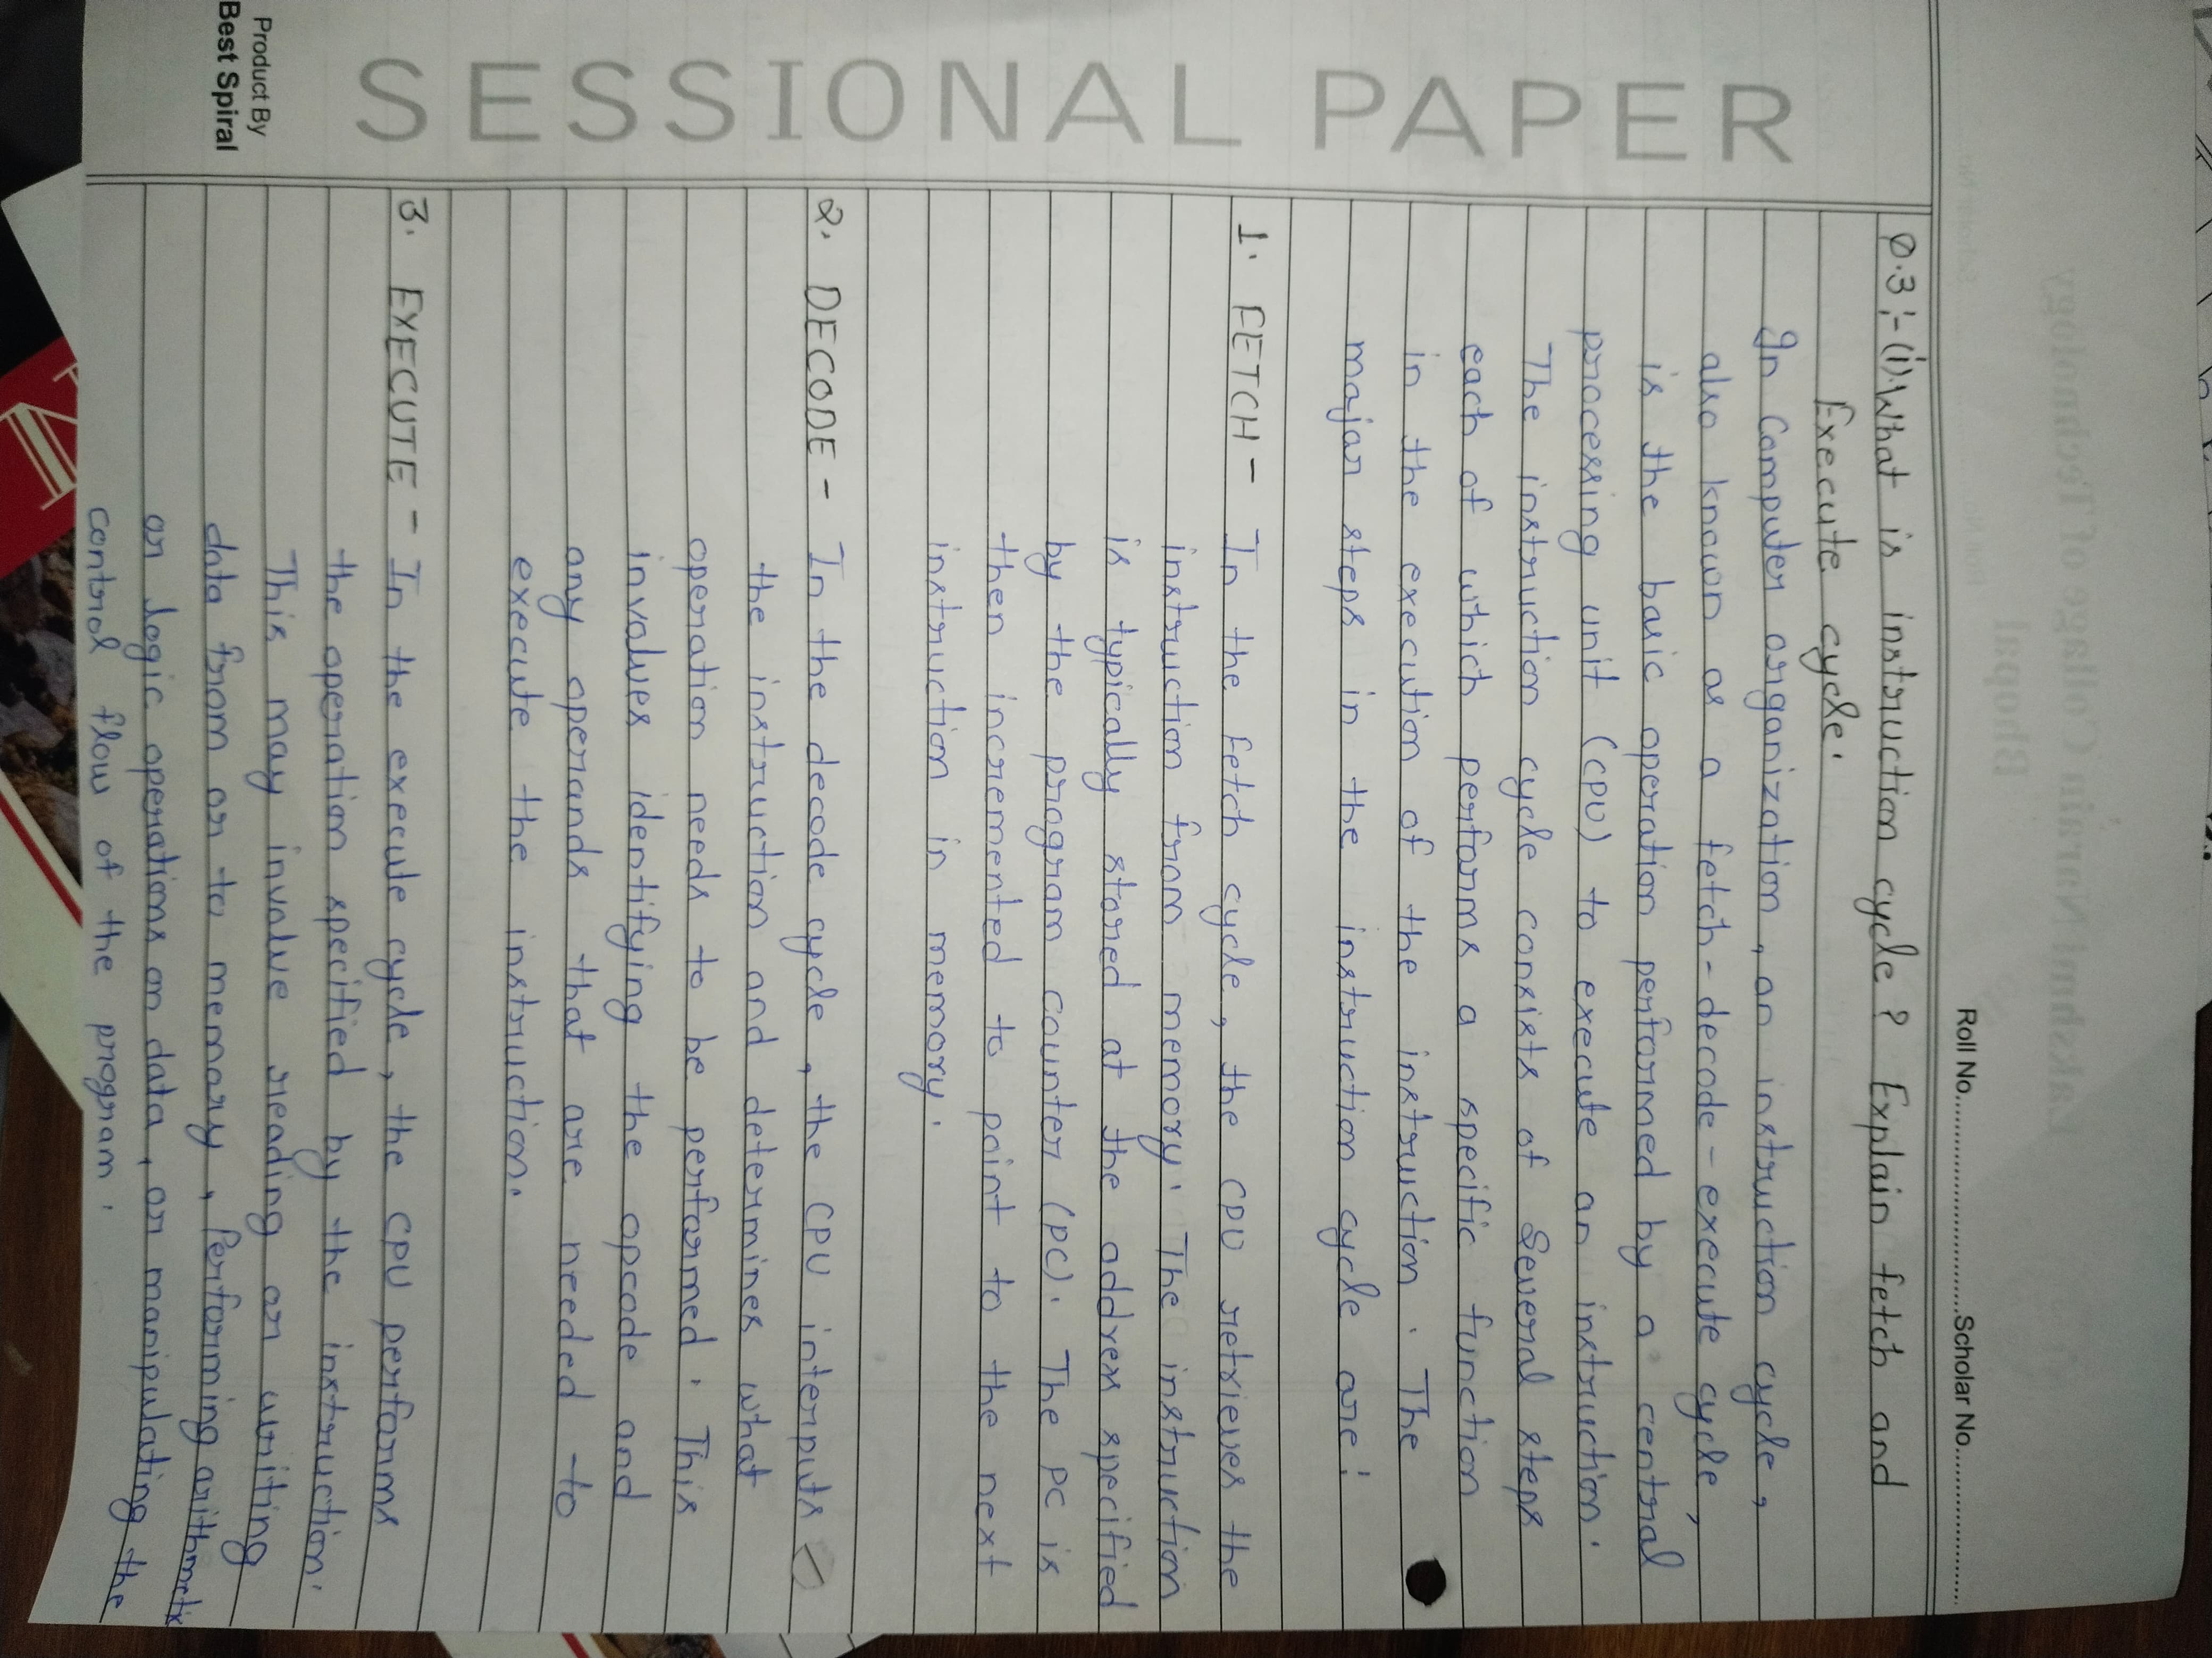 Lakshmi Narain Collage of Technology
Bhopal
Roll No. Scholar No.
Roll No.............................Scholar No.....................
SESSIONAL PAPER
Q.3:-(i).What is instruction cycle? Explain fetch and
Execute cycle.
In Computer organization, an instruction cycle,
also known as a fetch-decode-execute cycle,
is the basic operation performed by a central
processing unit (CPU) to execute an instruction.
The instruction cycle consists of Several steps
each of which performs a specific function
in the execution of the instruction. The
major steps in the instruction cycle are:
1. FETCH - In the Fetch cycle, the CPU retrieves the
instruction from memory. The instruction
is typically stored at the address specified
by the program counter (PC). The PC is
then incremented to point to the next
instruction in memory.
2. DECODE - In the decode cycle, the CPU interputs
the instruction and determines what
operation needs to be performed. This
involves identifying the opcode and
any operands that are needed to
execute the instruction.
3. EXECUTE - In the execute cycle, the CPU performs
the operation specified by the instruction.
This may involve reading or writing
data from or to memory, Performing arithmetic
or logic operations on data, or manipulating the
control flow of the program.
Product By
Best Spiral